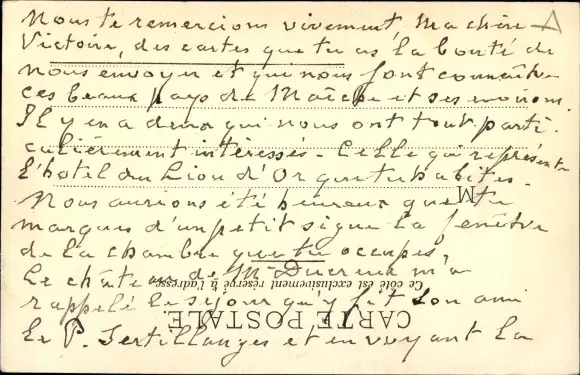 Nous te remercions vivement, Ma chère
Victoire, des cartes que tu as la bonté de
nous envoyer et qui nous font connaître
ces beaux pays de Maîche et ses environs.
Il y en a deux qui nous ont tout parti-
culièrement intéressés - Celle qui représente
l'hôtel du Lion d'Or que tu habites.
M
Nous aurions été heureux que tu
marques d'un petit signe la fenêtre
de la chambre que tu occupes,
Le château de Mr Ducreux m'a
Ce côté est exclusivement réservé à l'adresse
rappelé le séjour qu'y fit son ami
CARTE POSTALE
le P. Sertillanges et en voyant la